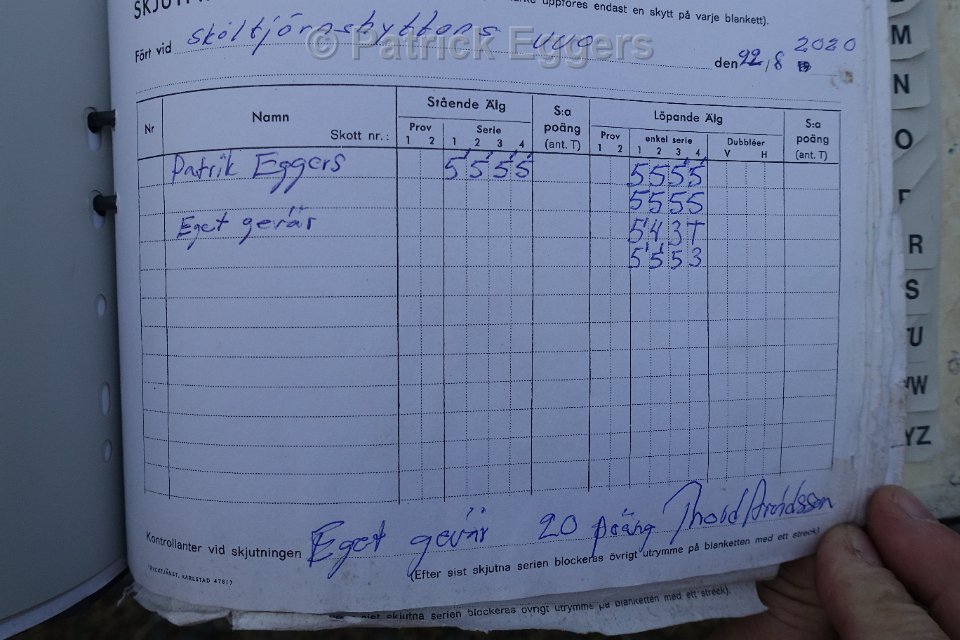 SKJUT
uppföres endast en skytt på varje blankett).
© Patrick Eggers
Fört vid Sköltjörnshyttans VVO den 22/8 2020
Nr Namn Stående Älg S:a poäng (ant. T) Löpande Älg S:a poäng (ant. T)
Skott nr.: Prov Serie Prov enkel serie Dubbléer
1 2 1 2 3 4 1 2 1 2 3 4 V H
Patrik Eggers 5 5 5 5 5 5 5 5
5 5 5 5
Eget gevär 5 4 3 T
5 5 5 3
Kontrollanter vid skjutningen Eget gevär 20 poäng
(Efter sist skjutna serien blockeras övrigt utrymme på blanketten med ett streck)
KARLSTAD
sist skjutna serien blockeras övrigt utrymme på blanketten med ett streck).
M
N
O
R
S
TU
VW
YZ